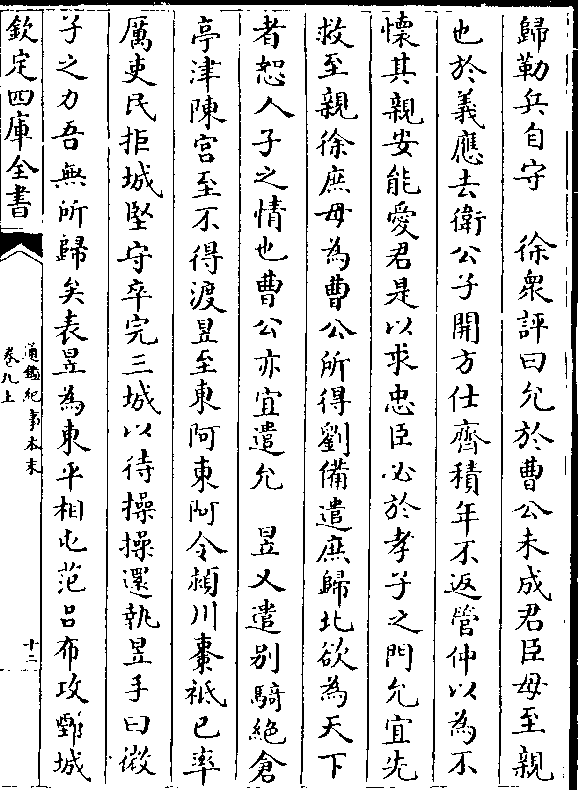 歸勒兵自守　徐衆評曰允於曹公未成君臣母至親
也於義應去衛公子開方仕齊積年不返管仲以為不
懷其親安能愛君是以求忠臣必於孝子之門允宜先
救至親徐庶母為曹公所得劉備遣庶歸北欲為天下
者恕人子之情也曹公亦宜遣允　昱又遣别騎絶倉
亭津陳宫至不得渡昱至東阿東阿令潁川棗祗已率
厲吏民拒城堅守卒完三城以待操操還執昱手曰微
子之力吾無所歸矣表昱為東平相屯范吕布攻鄄城
欽定四庫全書
通鑑紀事本末
卷九上
十二